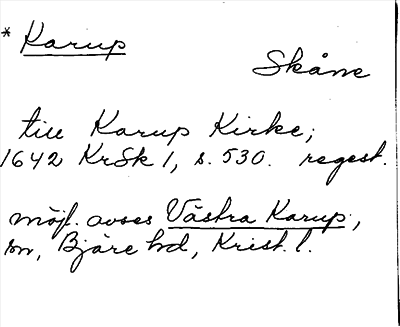 * Karup
Skåne
till Karup Kirke;
1642 KrSk 1, s. 530. regest.
möjl. avses Västra Karup,
sn, Bjäre hd, Krist. l.